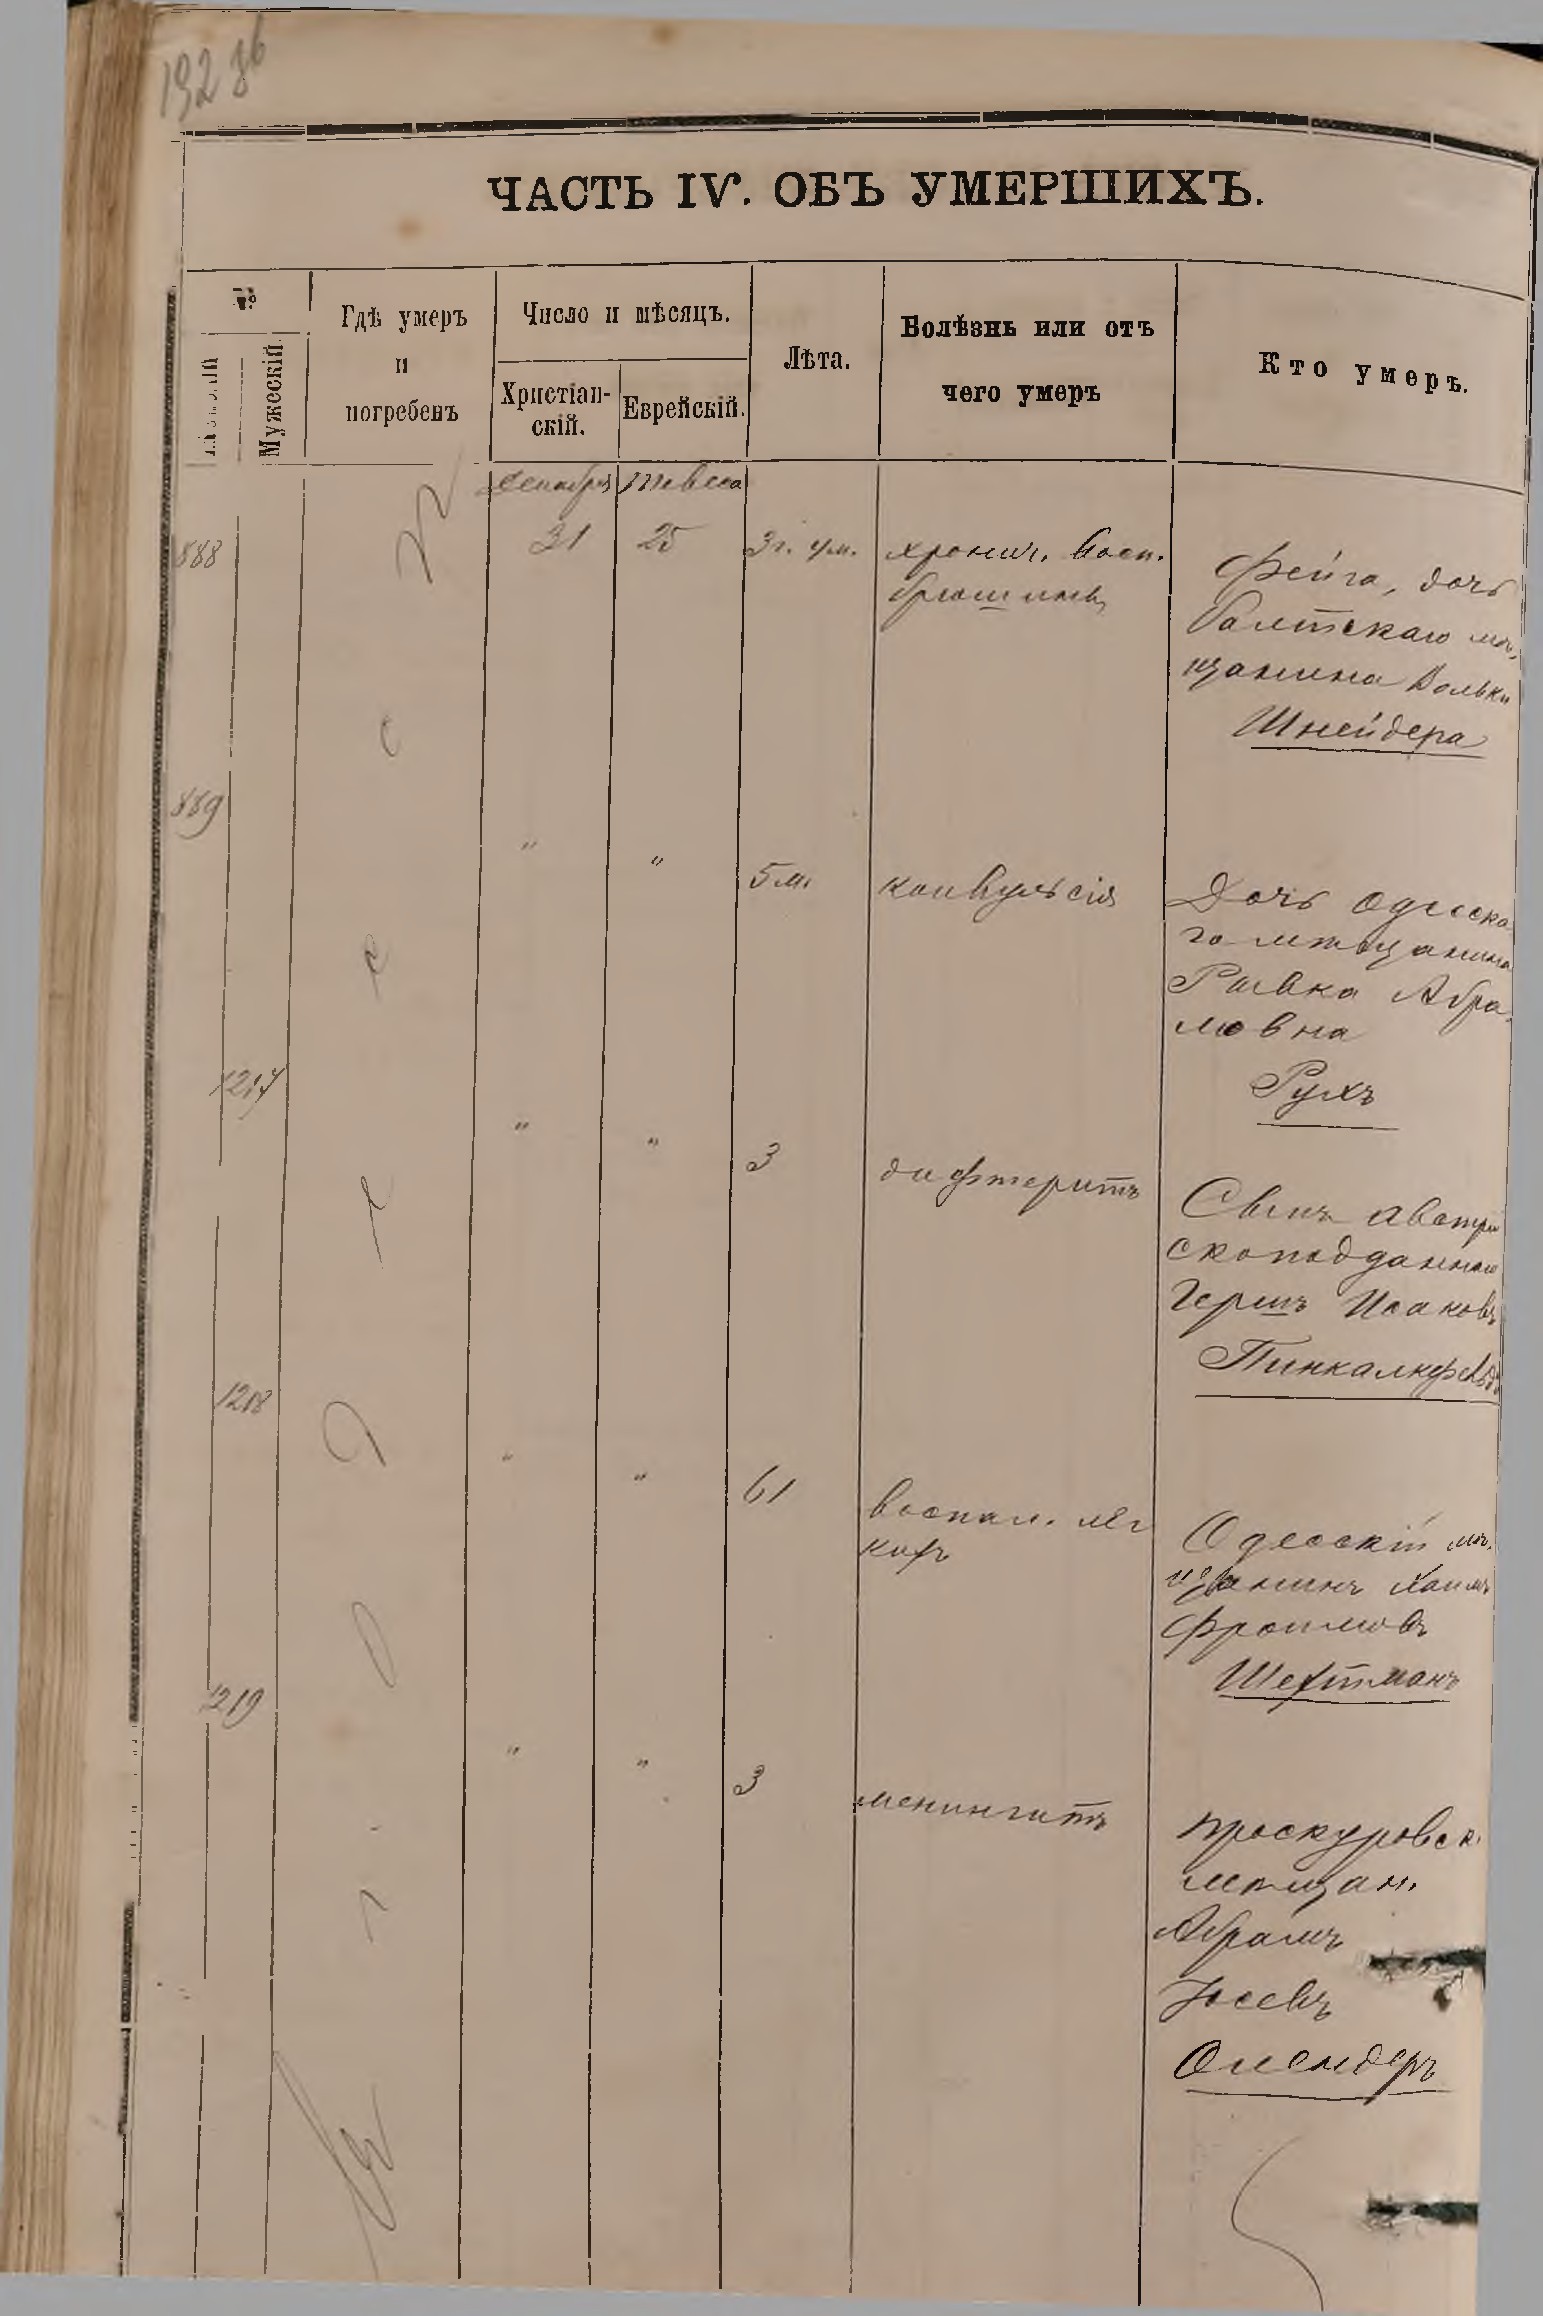 192 зв
ЧАСТЬ IV. ОБЪ УМЕРШИХЪ.
№
Женскій
Мужескій.
Гдѣ умеръ
и
погребенъ
Число и мѣсяцъ.
Христіан-
скій.
Еврейскій.
Лѣта.
Болѣзнь или отъ
чего умеръ
Кто умеръ.
Въ г. Одессѣ
Декабря
Тевеса
888
31
25
3г. 4м.
хронич. восп.
брюшины
Фейга, дочь
балтскаго мѣ-
щанина Вольки
Шнейдера
889
"
"
5 м.
конвульсія
Дочь одесска
го мѣщанина
Ривка Абра-
мовна
Рухъ
1217
"
"
3
дифтеритъ
Сынъ австрій
скоподданнаго
Гершъ Исаковъ
1218
"
"
61
воспал. лег
кихъ
Одесскій мѣ-
щанинъ Хаимъ
Фроимовъ
Шехтманъ
1219
"
"
3
менингитъ
Проскуровск.
мѣщан.
Абрамъ
Іосевъ